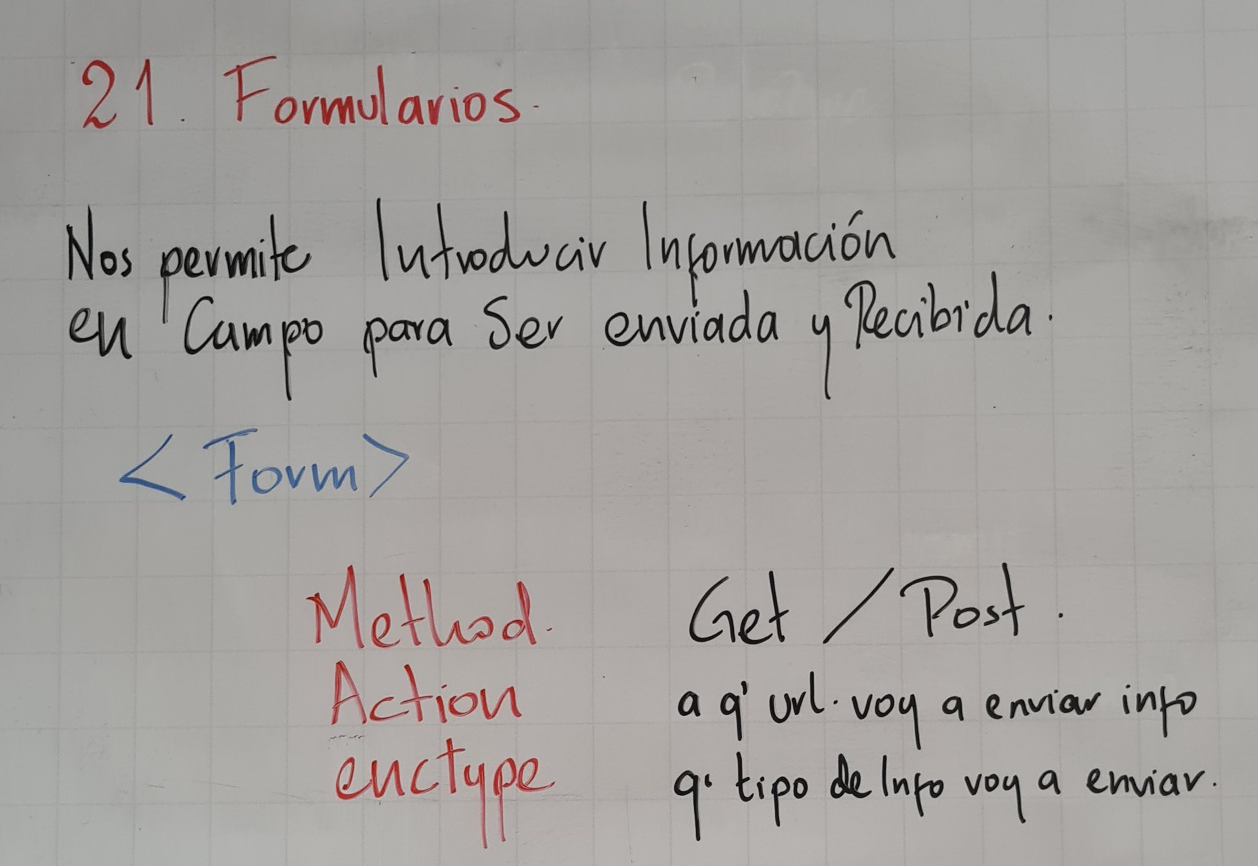 21. Formularios.
Nos permite Introducir Información
en Campo para Ser enviada y Recibida.
<Form>
Method. Get / Post.
Action a q' url. voy a enviar info
enctype q' tipo de Info voy a enviar.